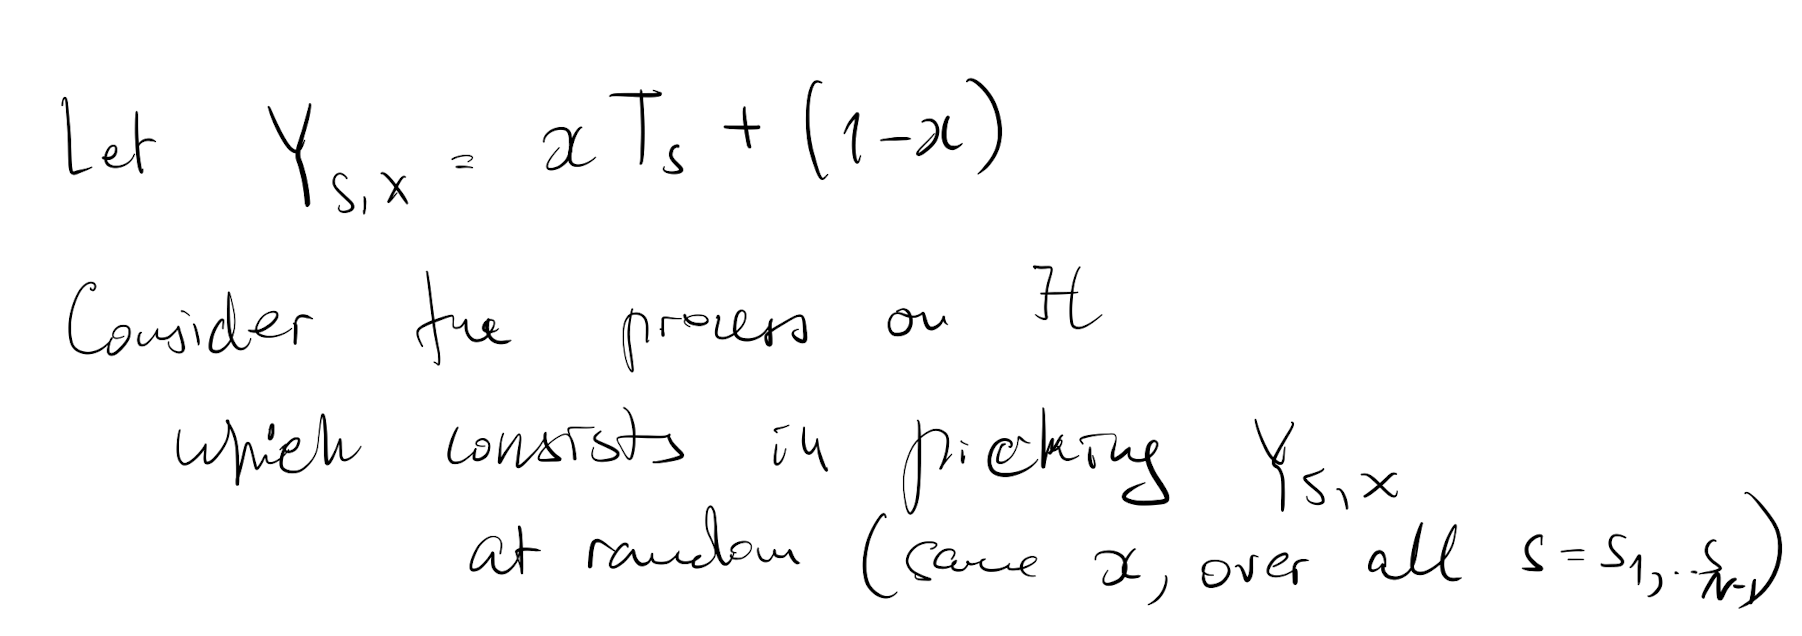 Let Y_{s,x} = x T_s + (1-x)
Consider the process on ℋ
which consists in picking Y_{s,x}
at random (same x, over all s = s_1, .. s_{N-1})